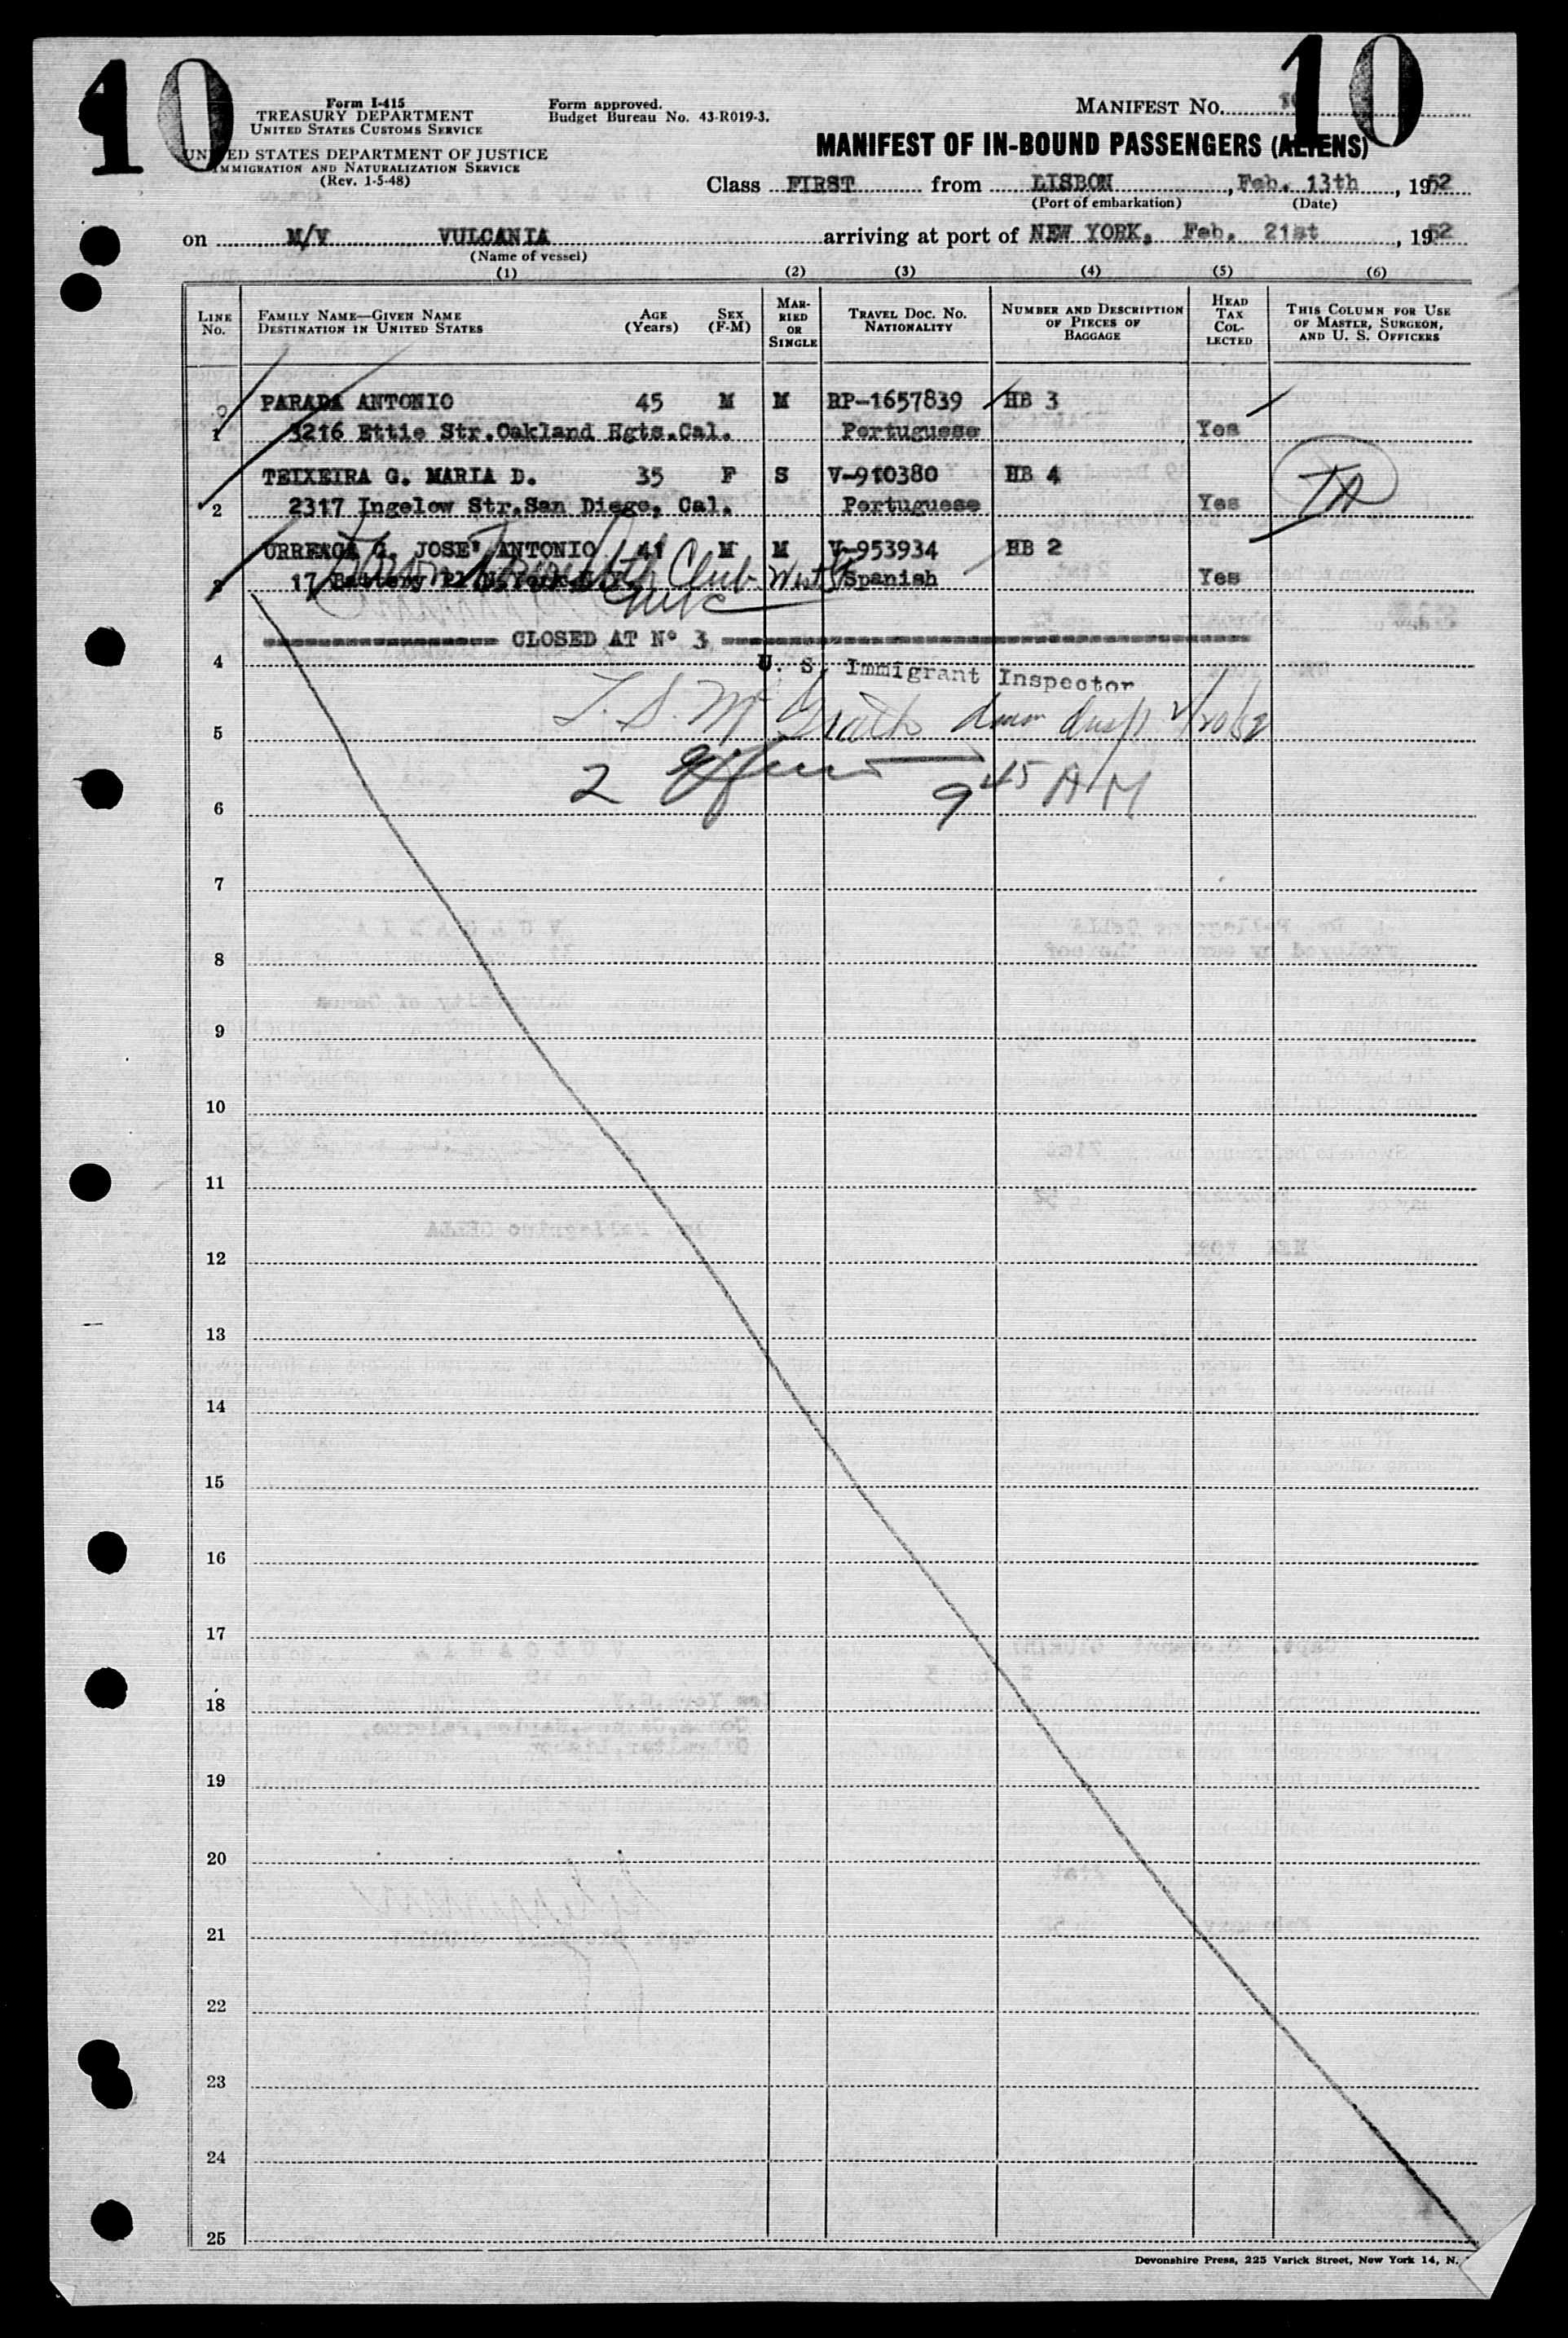 10
10
Form I-415
TREASURY DEPARTMENT
UNITED STATES CUSTOMS SERVICE
UNITED STATES DEPARTMENT OF JUSTICE
IMMIGRATION AND NATURALIZATION SERVICE
(Rev. 1-5-48)
Form approved.
Budget Bureau No. 43-R019-3.
MANIFEST NO.
MANIFEST OF IN-BOUND PASSENGERS (ALIENS)
Class FIRST from LISBON, Feb. 13th, 1952
(Port of embarkation) (Date)
on M/V VULCANIA arriving at port of NEW YORK, Feb. 21st, 1952
(Name of vessel)
(1) (2) (3) (4) (5) (6)
LINE No. FAMILY NAME—GIVEN NAME DESTINATION IN UNITED STATES AGE (Years) SEX (F-M) MARRIED OR SINGLE TRAVEL DOC. NO. NATIONALITY NUMBER AND DESCRIPTION OF PIECES OF BAGGAGE HEAD TAX COLLECTED THIS COLUMN FOR USE OF MASTER, SURGEON, AND U. S. OFFICERS
PARADA ANTONIO 45 M M RP-1657839 HB 3
1 3216 Ettie Str.Oakland Hgts.Cal. Portuguese Yes
TEIXEIRA G. MARIA D. 35 F S V-910380 HB 4
2 2317 Ingelow Str.San Diego, Cal. Portuguese Yes
URREAGA G. JOSE' ANTONIO 41 M M V-953934 HB 2
3 17 Battery Pl.N.York N.Y. Club Spanish Yes
CLOSED AT Nº 3
4 U. S. Immigrant Inspector
5 T. S. McGrath 2/20/52
6 2 9 45 AM
7
8
9
10
11
12
13
14
15
16
17
18
19
20
21
22
23
24
25
Devonshire Press, 225 Varick Street, New York 14, N.